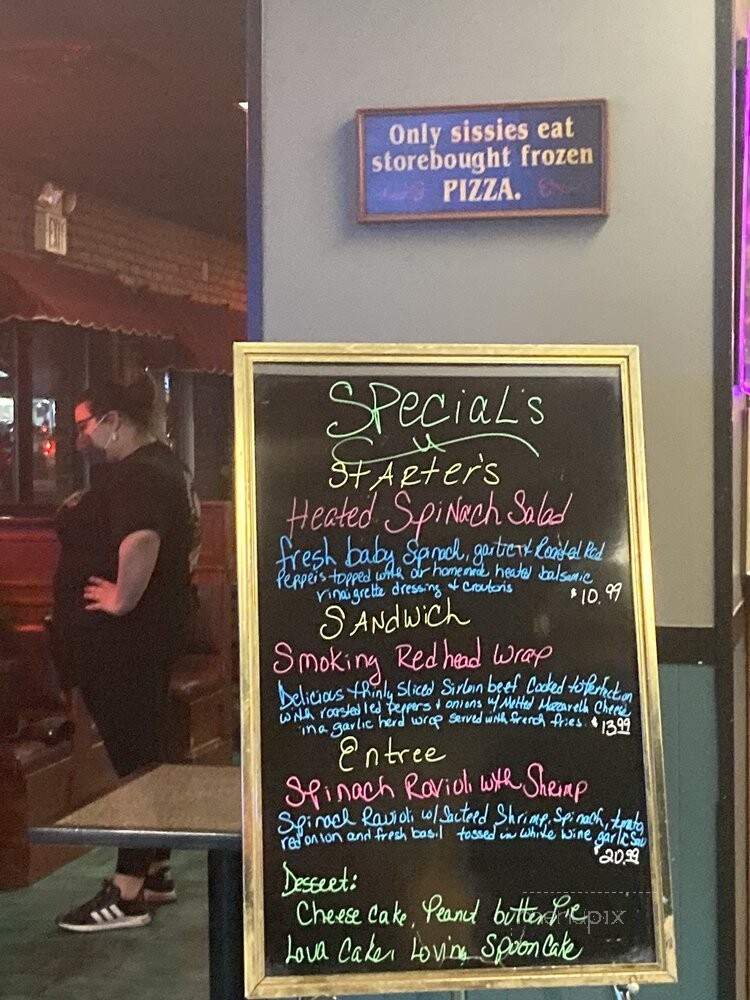 Only sissies eat
storebought frozen
PIZZA.
EXIT
Specials
Starters
Heated Spinach Salad
fresh baby Spinach, garlic & Roasted Red
Peppers topped with our homemade heated balsamic
vinaigrette dressing & croutons $10.99
Sandwich
Smoking Redhead Wrap
Delicious thinly sliced Sirloin beef Cooked to Perfection
with roasted red peppers & onions w/ Melted Mozzarella Cheese
in a garlic herb wrap served with french fries. $13.99
Entree
Spinach Ravioli with Shrimp
Spinach Ravioli w/ Sauteed Shrimp, Spinach, tomato,
red onion and fresh basil tossed in white wine garlic
$20.99
Dessert:
Cheese Cake, Peanut butter Pie
Lava Cake, Loving Spoon Cake
menupix